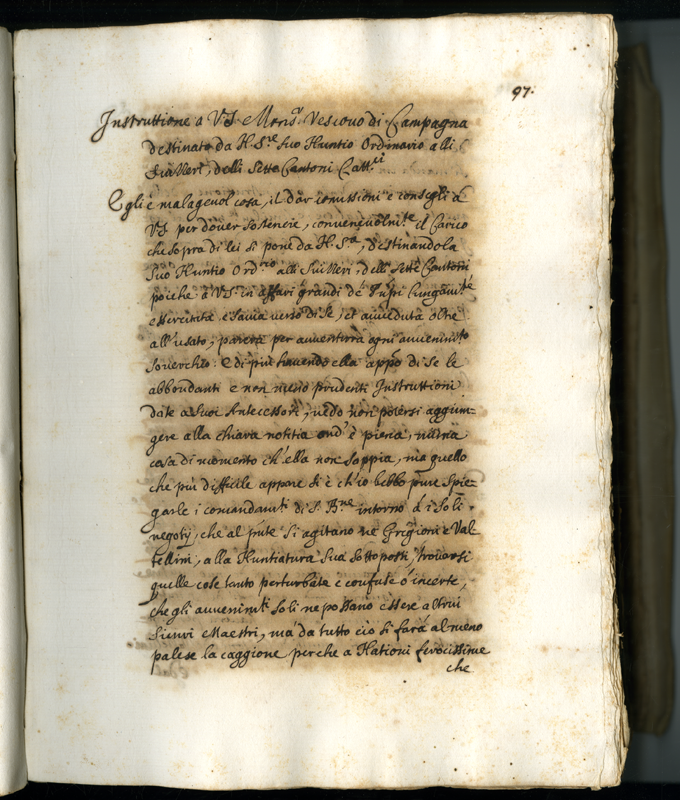 97.
Instruttione a V.S. Mons.r Vescovo di Campagna
destinato da N. S.re suo Nuntio Ordinario alli
Suizzeri, delli Sette Cantoni Catt.ci
Egli è malagevol cosa, il dar comissioni e consegli à
V.S. per dover sostenere, convenevolm.te il Carico
che sopra di lei si pone da N. S.re, destinandola
suo Nuntio Ord.rio alli Suizzeri, delli Sette Cantoni
poiche à V.S. in affari grandi de
essercitata e savia verso di se, et avveduta oltre
all'usato, parerà per avventura ogni avvenim.to
soverchio: e di più havendo ella app.o di se le
abbondanti e non meno prudenti Instruttioni
date a suoi Antecessori, vedo non potersi aggiun-
gere alla chiara notitia ond' è piena, niuna
cosa di momento ch'ella non sappia, ma quello
che più difficile appare si è ch'io debbo pure spie-
garle i comandam.ti di S. B.ne intorno à i soli
negotij, che al p̃nte si agitano ne Grigioni e Val-
tellini, alla Nuntiatura sua sottoposti, trovarsi
quelle cose tanto perturbate e confuse ò incerte,
che gli avvenim.ti soli ne possano essere altrui
sicuri Maestri, mà da tutto ciò si farà almeno
palese la caggione perche a Nationi ferocissime
che